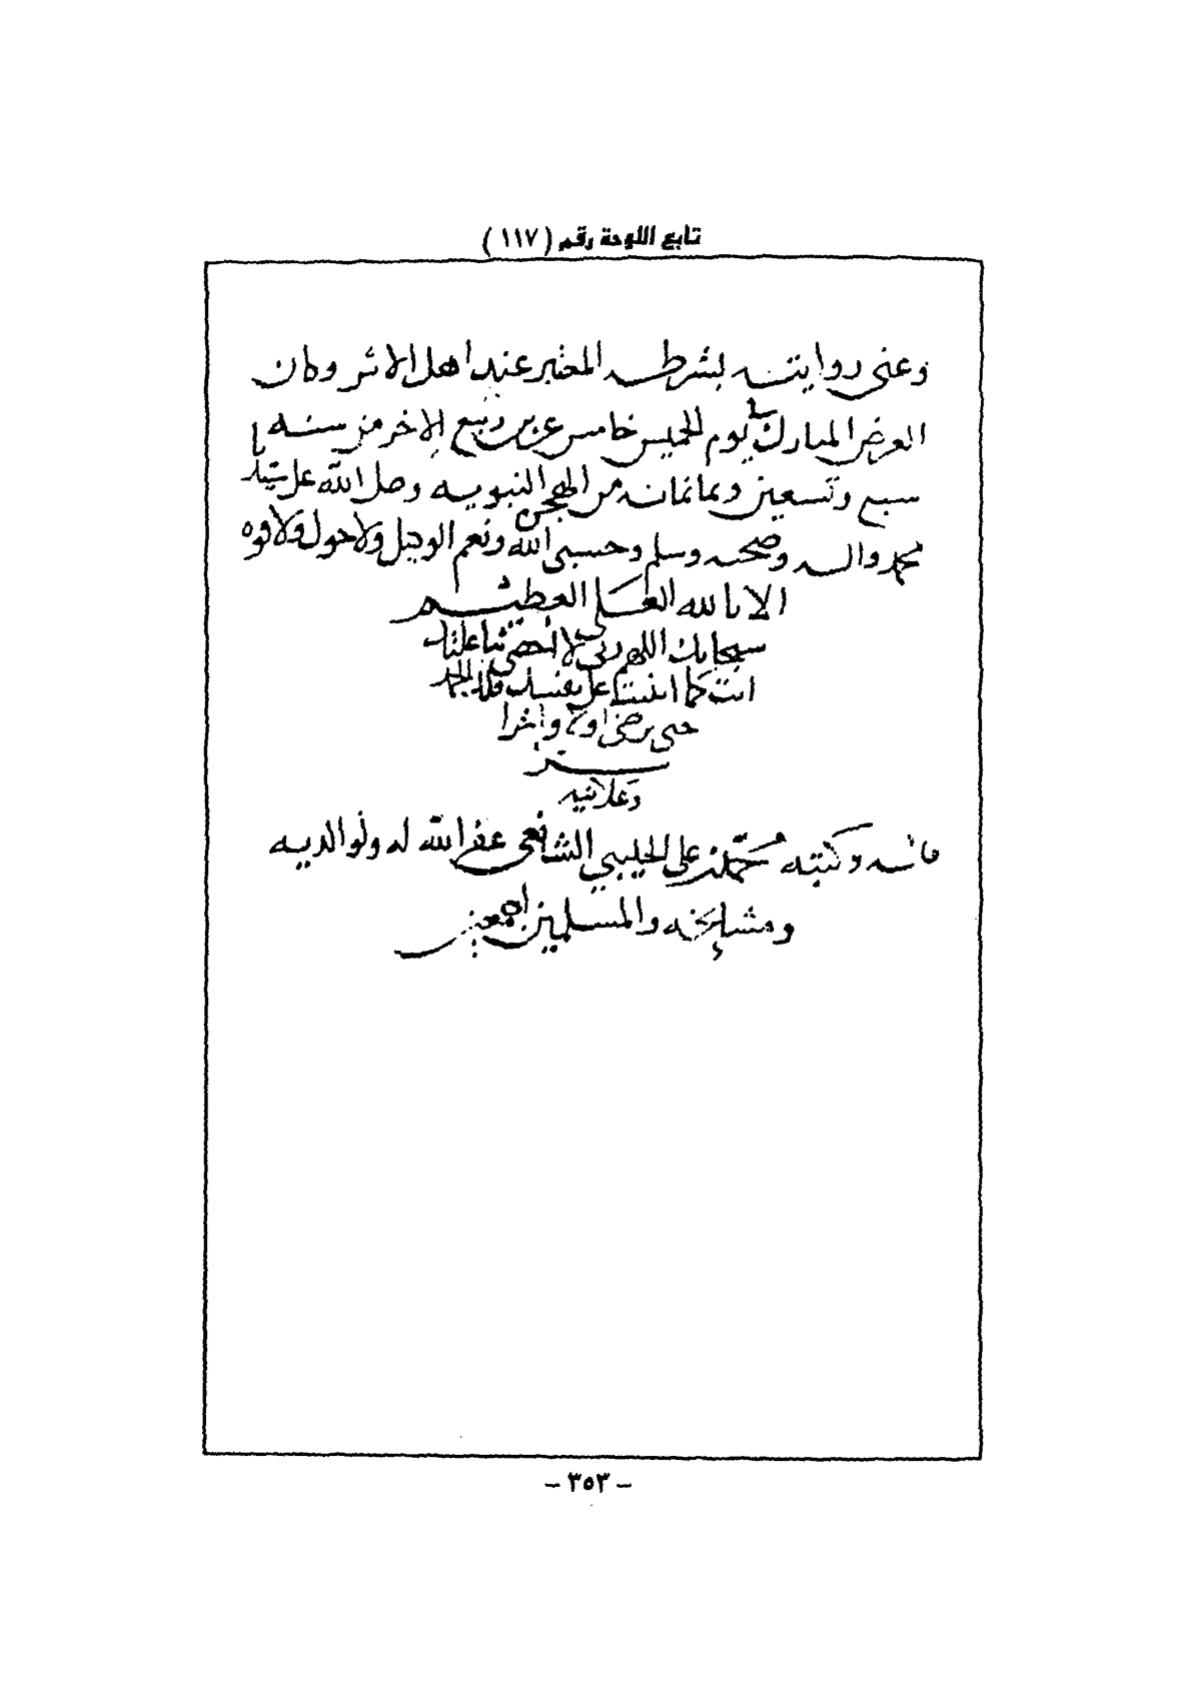 تابع اللوحة رقم ( ١١٧ )
وعنى روايته بشرطه المعتبر عند اهل الاثر وكان
العرض المبارك في يوم الخميس خامس عشرين ربيع الاخر من سنه
سبع وتسعين وثمانمائه من الهجره النبويه وصلى الله على سيدنا
محمد واله وصحبه وسلم وحسبى الله ونعم الوكيل ولاحول ولاقوه
الا بالله العلى العظيم
سبحانك اللهم ربى لا احصى ثنا عليك
انت كما اثنيت على نفسك فلك الحمد
حتى ترضى اولا واخرا
سرا
وعلانيه
قاله وكتبه محمد بن على الحليبي الشافعى غفر الله له ولوالديه
ومشايخه والمسلمين اجمعين
– ٣٥٣ –